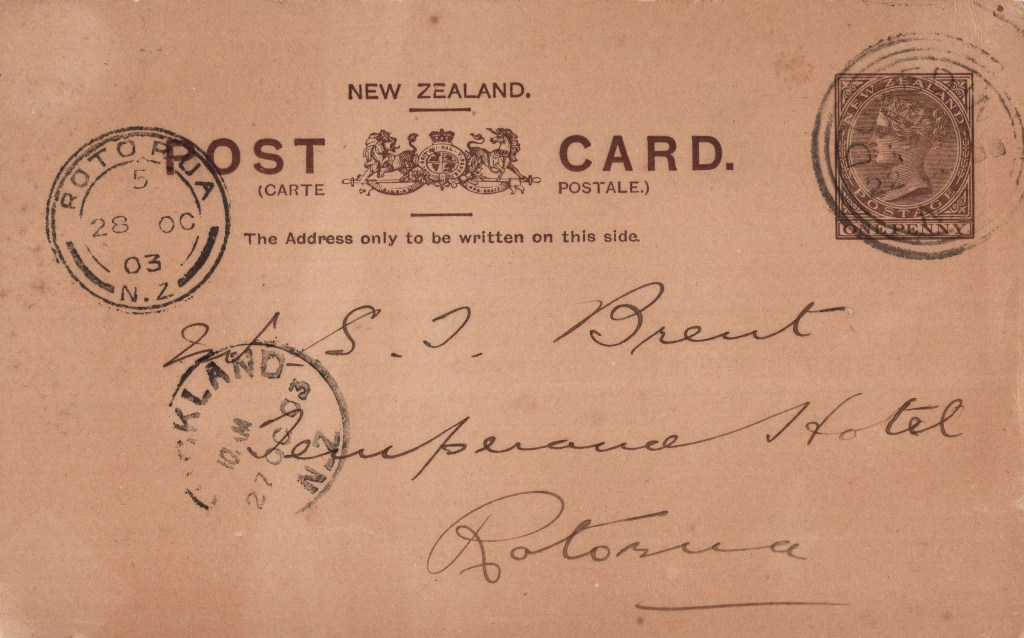 NEW ZEALAND.
POST CARD.
(CARTE POSTALE.)
The Address only to be written on this side.
NEW ZEALAND
POSTAGE
ONE PENNY
ROTORUA
5
28 OC
03
N.Z
S. J. Brent
AUCKLAND
10
27 OC 03
N.Z
Temperance Hotel
Rotorua